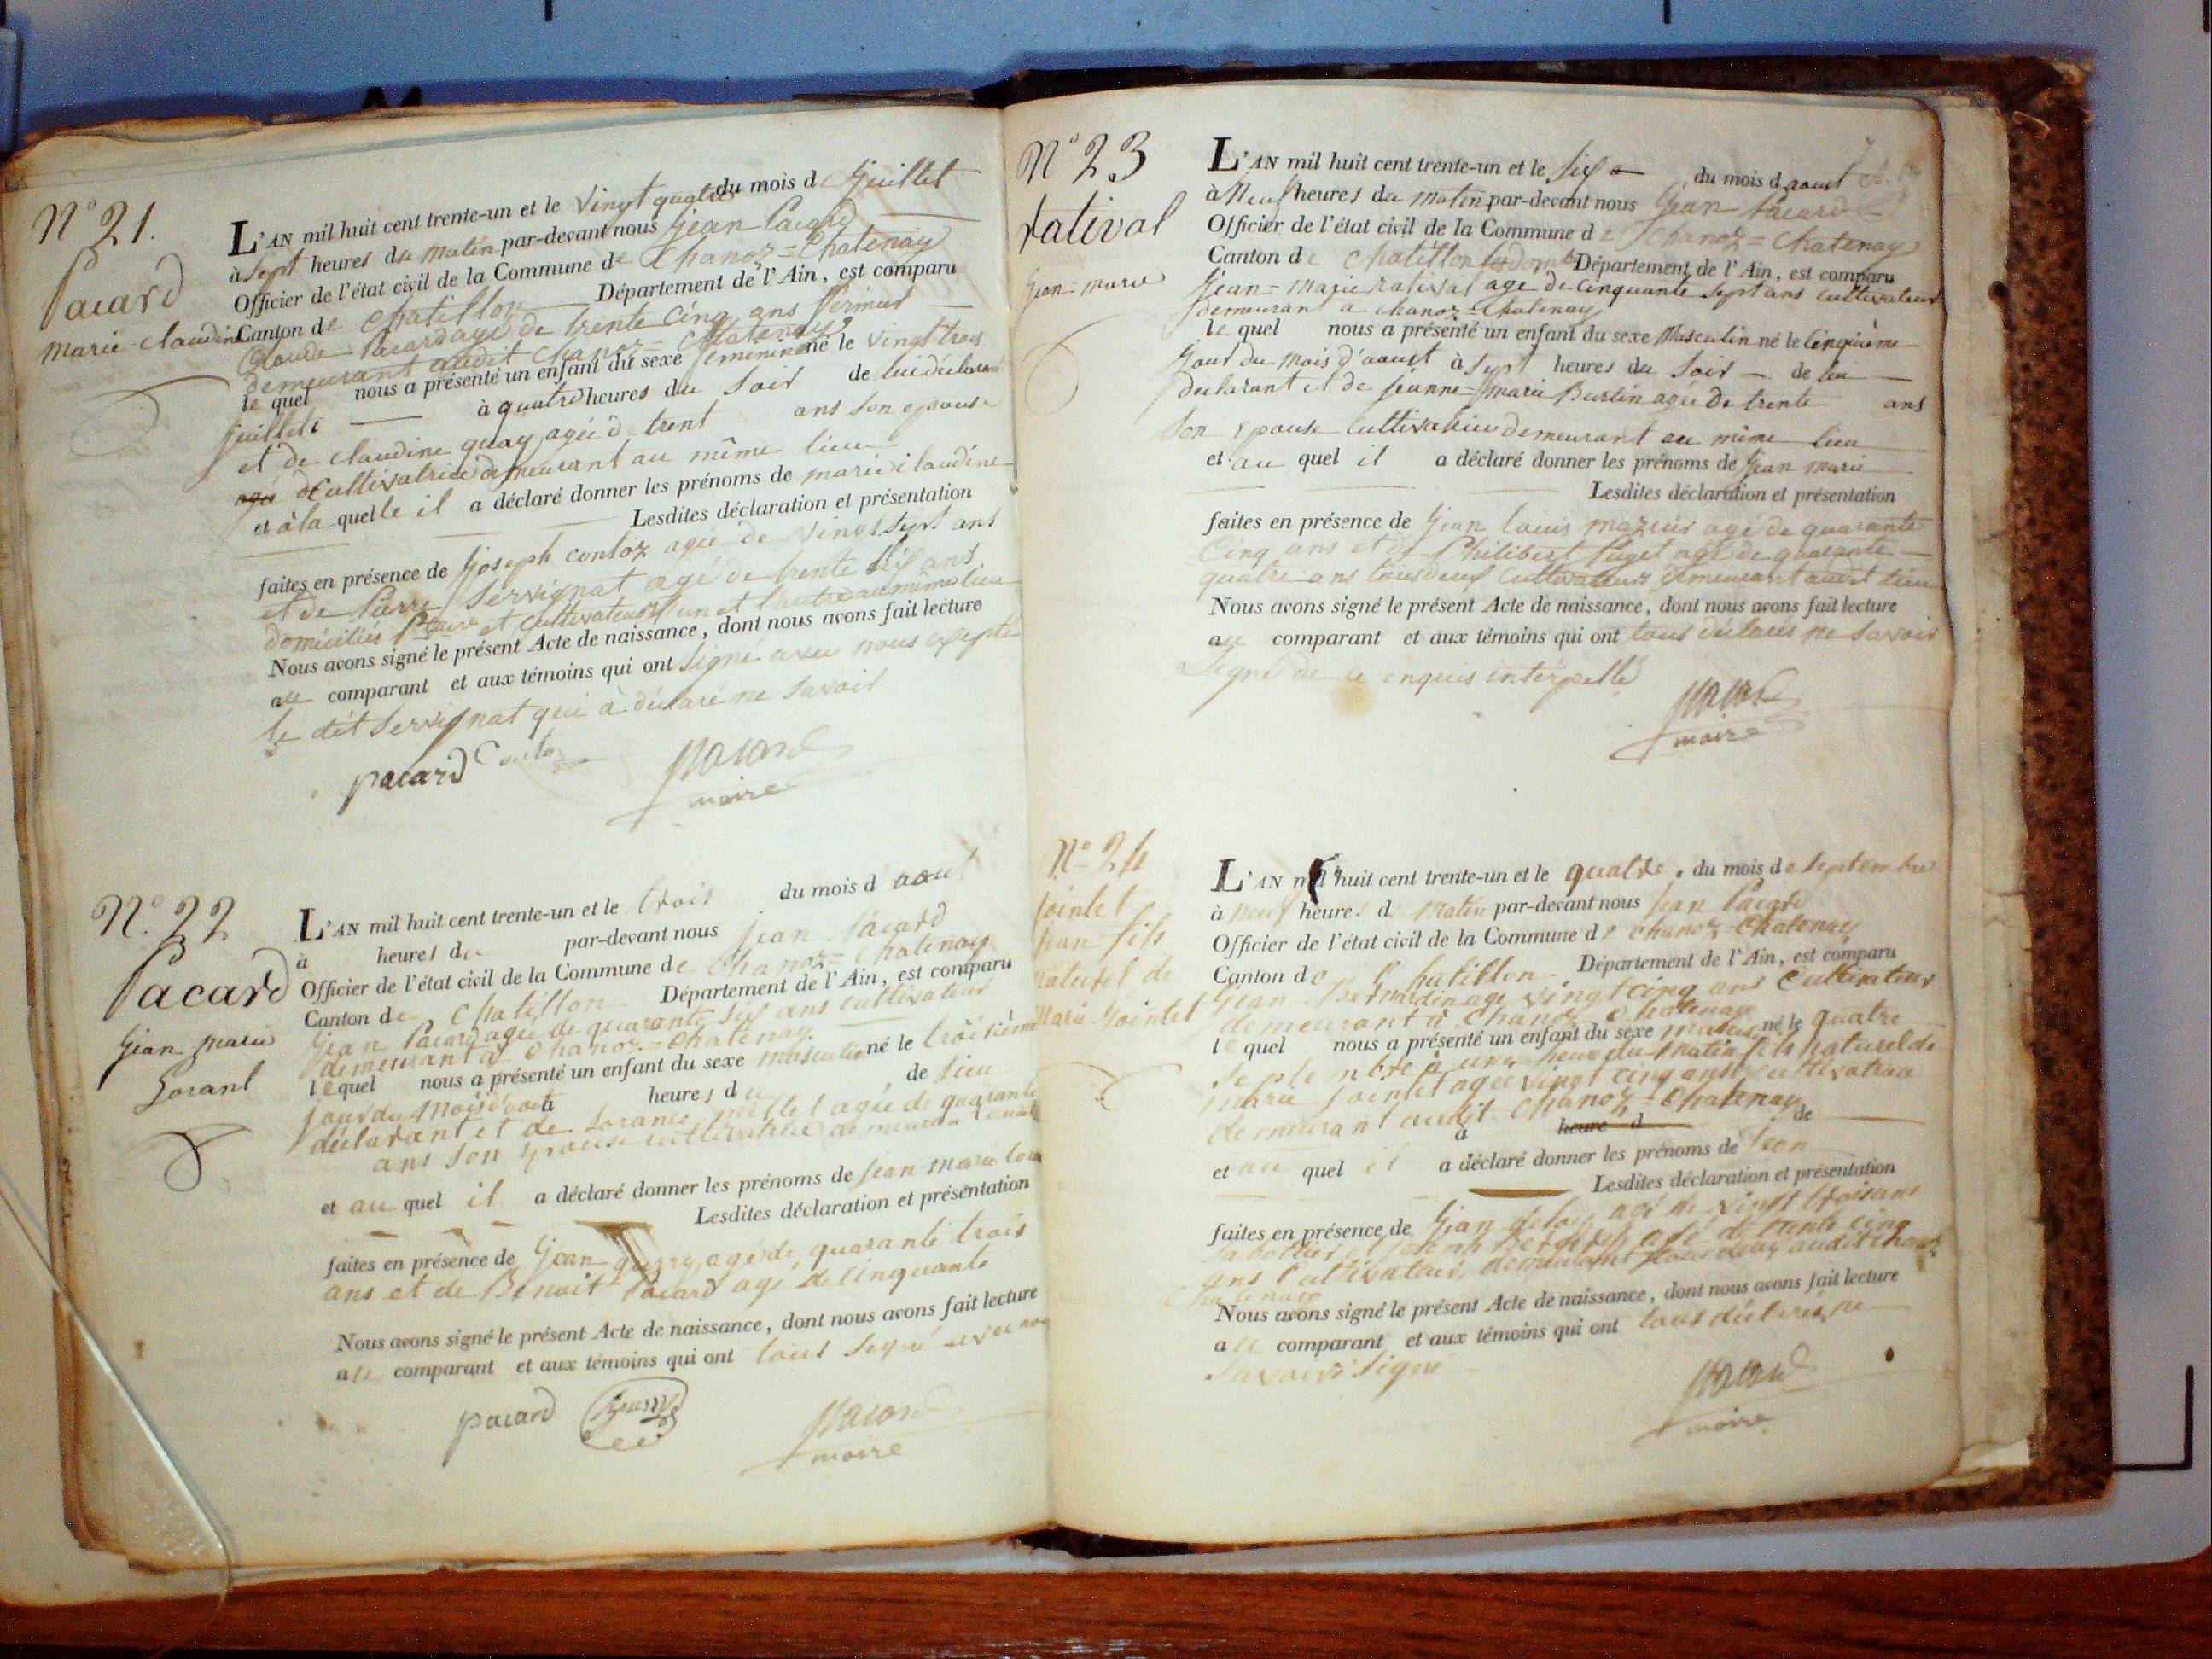 N° 21.
Pacard
marie claudine
L'AN mil huit cent trente-un et le vingt quatre du mois de juillet
à Sept heures du matin par-devant nous jean Pacard
Officier de l'état civil de la Commune de Chanoz=Chatenay
Canton de Chatillon Département de l'Ain, est comparu
Claude Pacard agé de trente cinq ans fermier
demeurant audit Chanoz=Chatenay
le quel nous a présenté un enfant du sexe feminin né le vingt trois
juillet à quatre heures du Soir de lui déclarant
et de claudine quay agée de trent ans Son epouse
agée de Cultivatrice demeurant au même lieu
et à la quelle il a déclaré donner les prénoms de marie claudine
Lesdites déclaration et présentation
faites en présence de joseph contoz agée de vingt Sept ans
et de Pierre Servignat agé de trente Six ans
domiciliés et cultivateurs l'un et l'autre au même lieu
Nous avons signé le présent Acte de naissance, dont nous avons fait lecture
au comparant et aux témoins qui ont Signé avec nous excepté
le dit Servignat qui à déclaré ne Savoir
pacard Contoz Pacard
maire
N°. 22
Pacard
jean marie
Lorant
L'AN mil huit cent trente-un et le trois du mois d'aout
à heures du par-devant nous jean Pacard
Officier de l'état civil de la Commune de Chanoz=Chatenay
Canton de Chatillon Département de l'Ain, est comparu
jean Pacard agée de quarante Six ans cultivateur
demeurant à Chanoz=Chatenay
le quel nous a présenté un enfant du sexe masculin né le troisième
jour du mois d'aout heures du de lieu
déclarant et de Lorance millet agée de quarante
ans Son epouse cultivatrice demeurant
et au quel il a déclaré donner les prénoms de jean marie
Lesdites déclaration et présentation
faites en présence de jean guerry agé de quarante trois
ans et de Benoit Pacard agé de cinquante
Nous avons signé le présent Acte de naissance, dont nous avons fait lecture
au comparant et aux témoins qui ont tous Signé avec nous
pacard Pacard
maire
N° 23
ratival
jean marie
L'AN mil huit cent trente-un et le Six du mois d'aoust
à Neuf heures du matin par-devant nous jean Pacard
Officier de l'état civil de la Commune de Chanoz=Chatenay
Canton de Chatillon Département de l'Ain, est comparu
jean=marie ratival agé de cinquante Sept ans cultivateur
demeurant à Chanoz=Chatenay
le quel nous a présenté un enfant du sexe Masculin né le Cinquième
jour du mois d'aoust à Sept heures du Soir de lui
déclarant et de jeanne=marie Burtin agée de trente ans
Son epouse Cultivatrice demeurant au même lieu
et au quel il a déclaré donner les prénoms de jean marie
Lesdites déclaration et présentation
faites en présence de jean louis mazuir agé de quarante
Cinq ans et de Philibert Puget agé de quarante
quatre ans tous deux Cultivateurs demeurant audit lieu
Nous avons signé le présent Acte de naissance, dont nous avons fait lecture
au comparant et aux témoins qui ont tous déclarés ne Savoir
Signé de ce enquis interpellé
Pacard
maire
N° 24
Jointet
jean fils
naturel de
Marie Jointet
L'AN mil huit cent trente-un et le quatre. du mois de Septembre
à Neuf heures du Matin par-devant nous jean Pacard
Officier de l'état civil de la Commune de Chanoz=Chatenay
Canton de Chatillon Département de l'Ain, est comparu
jean Bernardin age vingt cinq ans Cultivateur
demeurant à Chanoz Chatenay
le quel nous a présenté un enfant du sexe masculin né le quatre
Septembre à une heure du Matin fils naturel de
marie jointet agée vingt cinq ans cultivatrice
demeurant audit Chanoz=Chatenay
à heure d de
et au quel il a déclaré donner les prénoms de Jean
Lesdites déclaration et présentation
faites en présence de jean agé de vingt trois ans
Sabottier et joseph agé de trente cinq
ans Cultivateur, demeurant tous deux audit Chanoz
Chatenay
Nous avons signé le présent Acte de naissance, dont nous avons fait lecture
au comparant et aux témoins qui ont tous déclarés ne
Savoir Signé
Pacard
maire